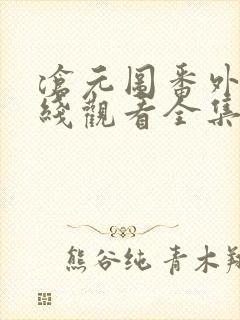 滄元圖番外
綫觀看全集
熊谷纯 青木翔